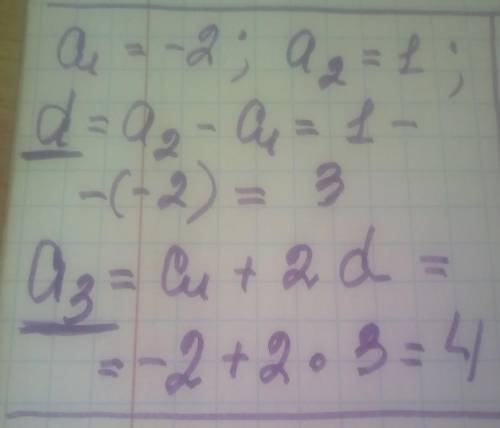 a₁ = -2; a₂ = 1;
d = a₂ - a₁ = 1 -
-(-2) = 3
a₃ = a₁ + 2d =
= -2 + 2 · 3 = 4